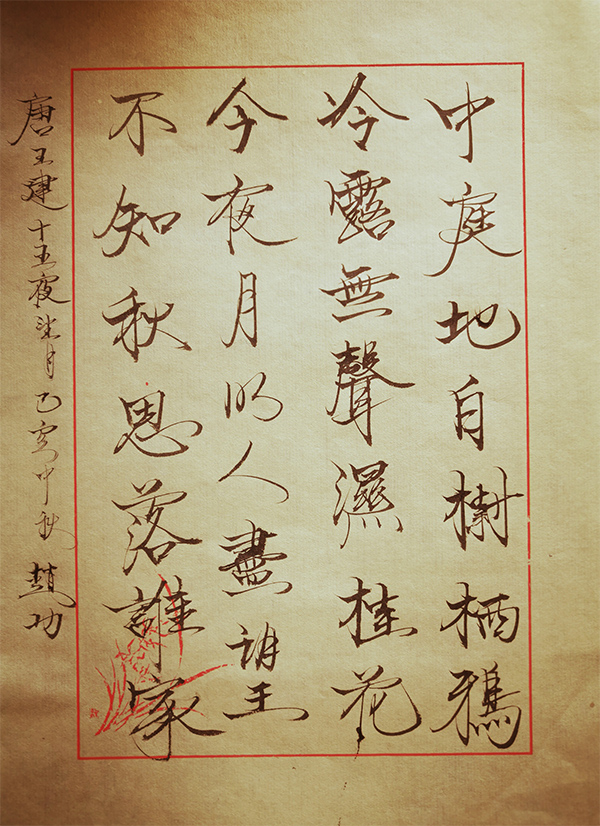 中庭地白樹栖鴉
冷露無聲濕桂花
今夜月明人盡望
不知秋思落誰家
唐王建十五夜望月乙亥中秋趙功